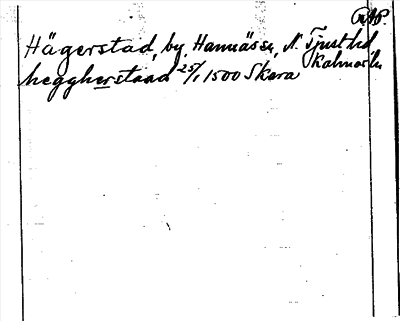 RAP.
Hägerstad, by, Hannäs sn, N. Tjust hd
Kalmar län
heggherstaad 25/1 1500 Skara